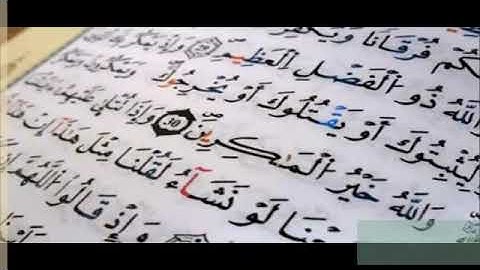 كُمْ فُرْقَانًا وَيُكَفِّرْ
وَاللَّهُ ذُو الْفَضْلِ الْعَظِيمِ ٢٩ وَإِذْ يَمْكُرُ
لِيُثْبِتُوكَ أَوْ يَقْتُلُوكَ أَوْ يُخْرِجُوكَ وَيَمْكُرُونَ وَيَمْكُرُ
وَاللَّهُ خَيْرُ الْمَٰكِرِينَ 30 وَإِذَا تُتْلَىٰ عَلَيْهِمْ
عْنَا لَوْ نَشَآءُ لَقُلْنَا مِثْلَ هَٰذَآ إِنْ هَٰذَا
وَإِذْ قَالُوا اللَّهُمَّ